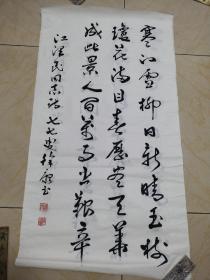 寒江雪柳日新晴玉树
琼花满目春历尽天华
成此景人间万事出艰辛
江泽民同志诗 七七叟